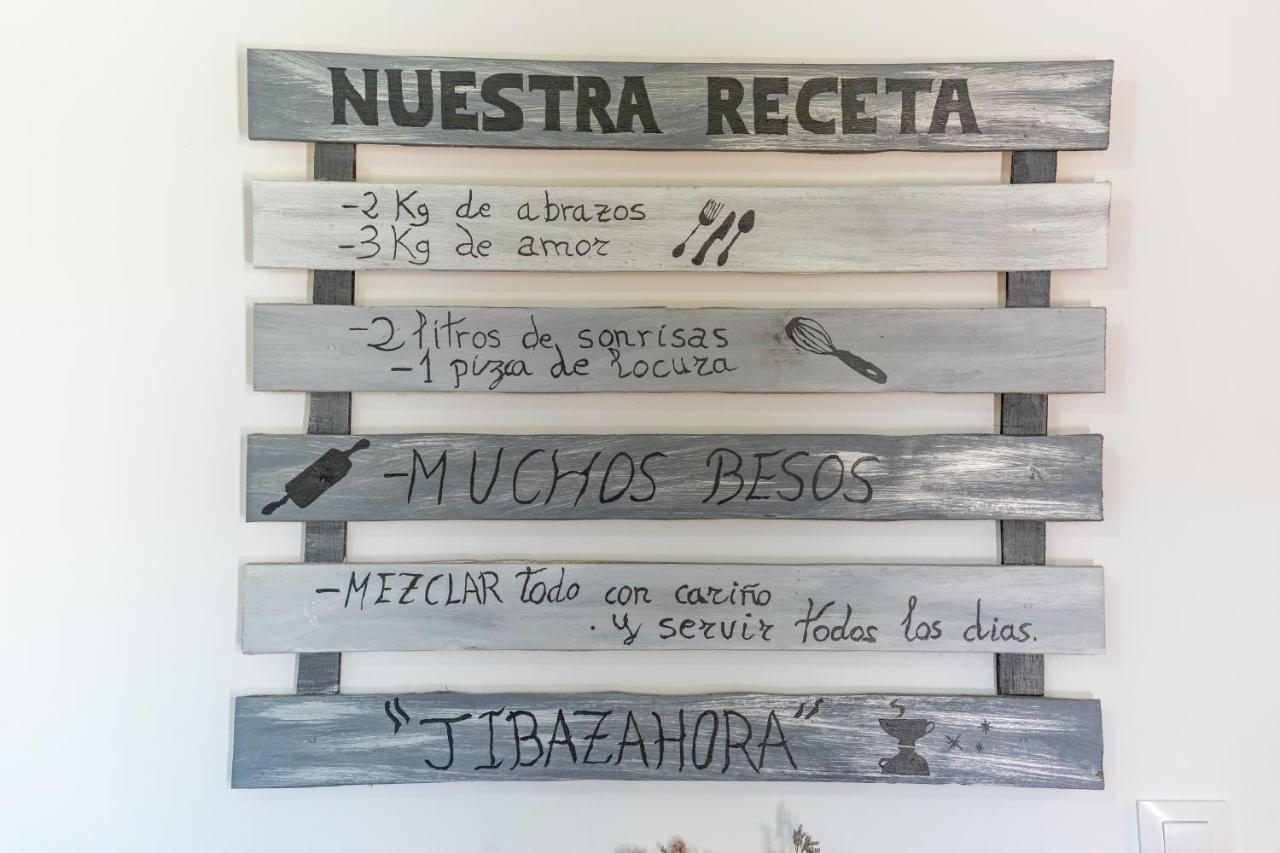 NUESTRA RECETA
-2 Kg de abrazos
-3 Kg de amor
-2 litros de sonrisas
-1 pizca de locura
-MUCHOS BESOS
-MEZCLAR todo con cariño
. y servir todos los dias.
"JIBAZAHORA"